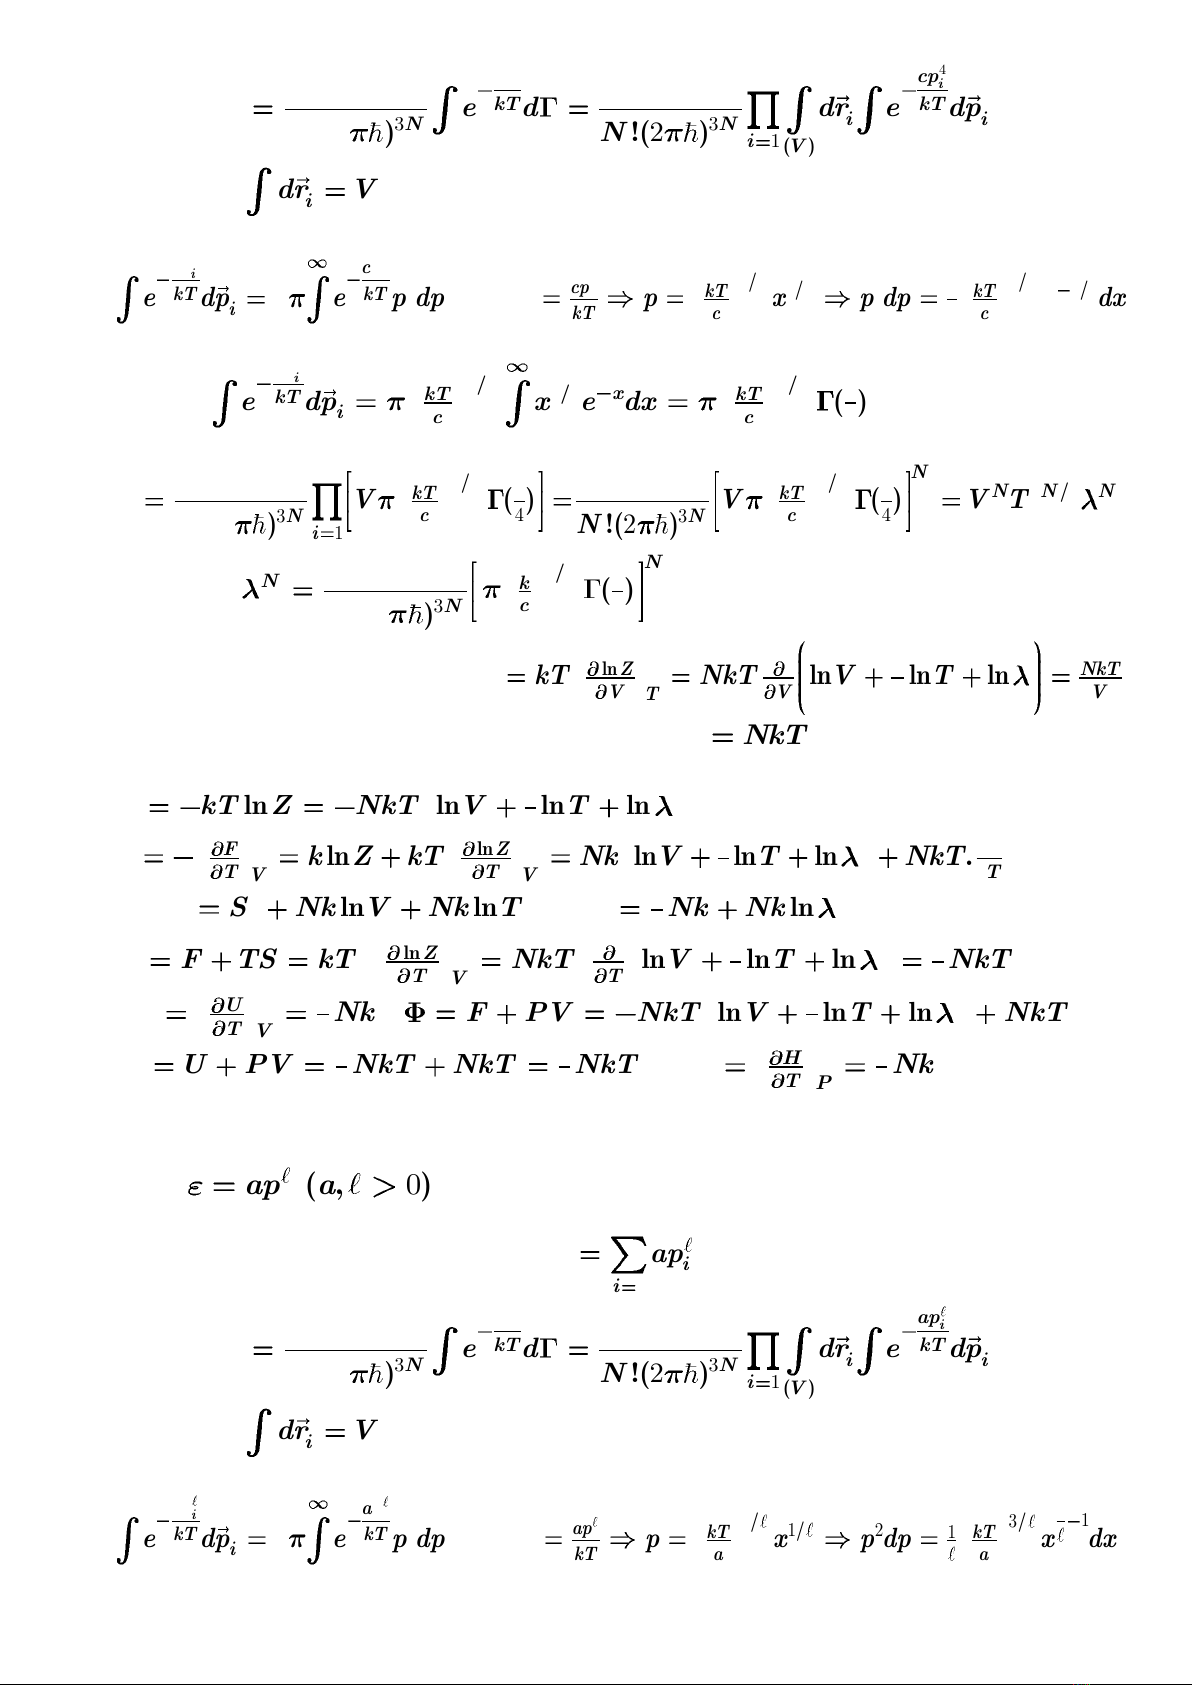 = ―― πħ)^{3N} ∫ e^{-― kT} dΓ = ―― N!(2πħ)^{3N} ∏ i=1 ∫ (V) dr⃗_i ∫ e^{-cp_i^4/kT} dp⃗_i
∫ dr⃗_i = V
∫ e^{-― i kT} dp⃗_i = π ∫ ∞ e^{-c/kT} p dp = cp/kT ⇒ p = kT/c / x / ⇒ p dp = – kT/c / – – / dx
∫ e^{-― i kT} dp⃗_i = π kT/c / ∫ ∞ x / e^{-x} dx = π kT/c / Γ(–)
= ―― πħ)^{3N} ∏ i=1 [Vπ kT/c / Γ(– 4)] = ―― N!(2πħ)^{3N} [Vπ kT/c / Γ(– 4)]^N = V^N T N/ λ^N
λ^N = ―― πħ)^{3N} [π k/c / Γ(–)]^N
= kT ∂lnZ/∂V T = NkT ∂/∂V (lnV + – lnT + lnλ) = NkT/V
= NkT
= −kT lnZ = −NkT lnV + – lnT + lnλ
= − ∂F/∂T V = k lnZ + kT ∂lnZ/∂T V = Nk lnV + – lnT + lnλ + NkT. – T
= S + Nk lnV + Nk lnT = – Nk + Nk lnλ
= F + TS = kT ∂lnZ/∂T V = NkT ∂/∂T lnV + – lnT + lnλ = – NkT
= ∂U/∂T V = – Nk Φ = F + PV = −NkT lnV + – lnT + lnλ + NkT
= U + PV = – NkT + NkT = – NkT = ∂H/∂T P = – Nk
ε = ap^ℓ (a, ℓ > 0)
= ∑ i= ap_i^ℓ
= ―― πħ)^{3N} ∫ e^{-― kT} dΓ = ―― N!(2πħ)^{3N} ∏ i=1 ∫ (V) dr⃗_i ∫ e^{-ap_i^ℓ/kT} dp⃗_i
∫ dr⃗_i = V
∫ e^{-― ℓ i kT} dp⃗_i = π ∫ ∞ e^{-a ℓ/kT} p dp = ap^ℓ/kT ⇒ p = kT/a /ℓ x^{1/ℓ} ⇒ p^2 dp = 1/ℓ kT/a 3/ℓ x^{– ℓ −1} dx